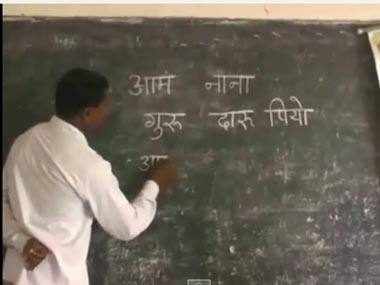 आमं नाना
गुरु दारु पियो
आ